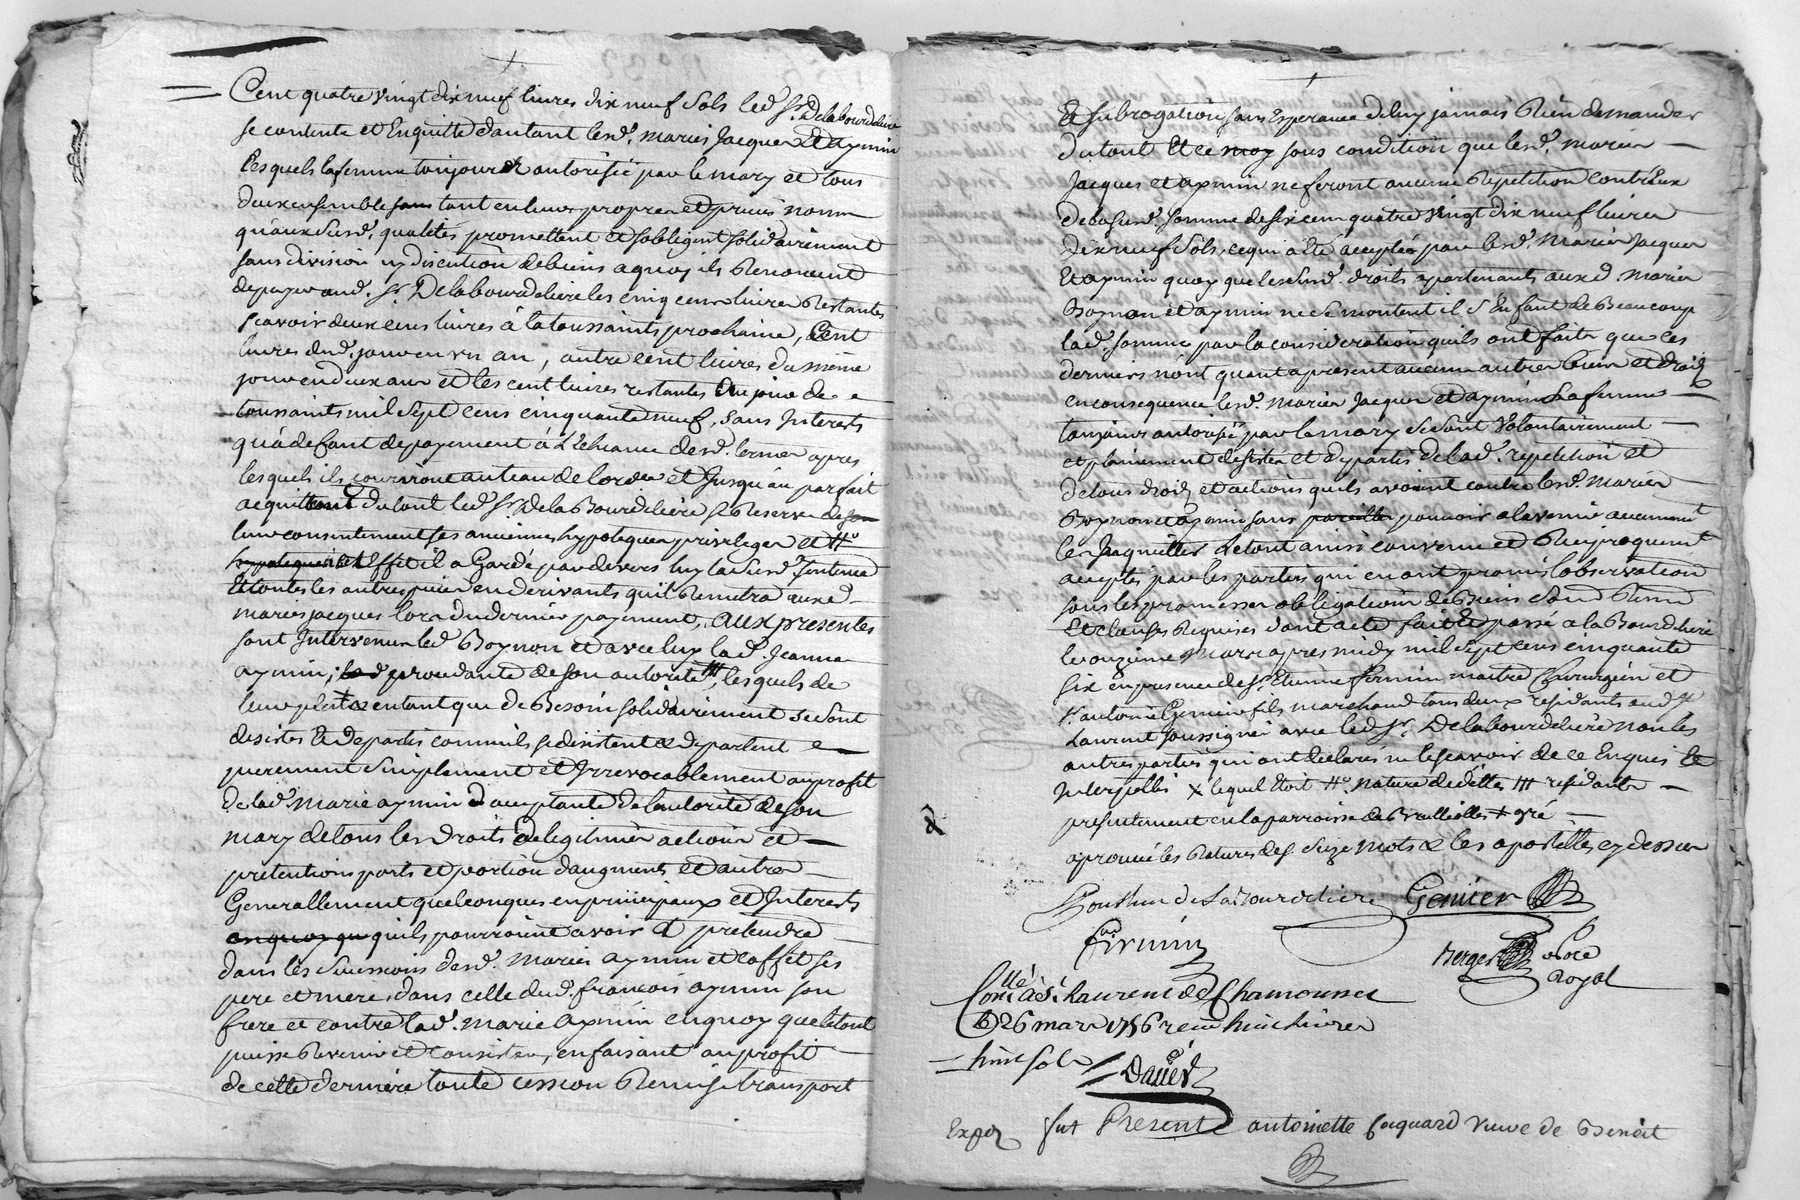 Cent quatre vingt dix neuf livres dix neuf sols led. Sr. Delabourdeliere
se contente et Enquitte dautant lesd. mariés Jacques Et aymin
lesquels la femme toujours autorisée par le mary et tous
deux ensemble tant en leurs propres et privés noms
qu'aux susd. qualités promettent et sobligent solidairement
sans division ny discution de biens a quoy ils Renoncent
de payer aud. Sr. Delabourdeliere les cinq cens livres Restantes
scavoir deux cens livres à la toussaints prochaine, Cent
livres dud. jour en un an, autre cent livres du même
jour en deux ans et les cent livres restantes Au jour de
toussaints mil sept cens cinquante neuf, sans Interests
qu'à defaut de payement à L'Echeance desd. termes apres
lesquels ils courront au taux de lordce et Jusqu'au parfait
acquittement du tout led. Sr. De la Bourdeliere se Reserve de
leur consentement ses anciennes hypoteques privileges et #
Effet il a Gardé par devers luy lad. susd. Sentence
Et toutes les autres pieces en derivants qu'il Remettra auxd.
mariés jacques lors du dernier payement, aux presentes
sont Intervenus led. Boynon et avec luy lad. Jeanne
aymin, procedante de son autorité #, lesquels de
leur plein + et entant que de Besoin solidairement se sont
desistés Et departis comme ils se desistent & departent
purement simplement et Irrevocablement au profit
de lad. Marie aymin acceptante de lautorité de son
mary de tous les Droits de legitimes actions et
pretentions parts et portion daugments et autres
Generallement quelconques en principaux et Interests
quils pourroient avoir et pretendre
dans les Successions desd. Mariés aymin et Coffet ses
pere et mere, dans celle dud. francois aymin son
frere et contre lad. Marie Aymin en quoy que le tout
puisse Revenir et Consister, en faisant au profit
de cette derniere toute cession Remise transport
Et subrogation sans Esperance de luy jamais Rien demander
du tout Et ce moy sous condition que lesd. mariés
Jacques et aymin ne feront aucune Repetition contr'Eux
de la susd. somme de six cens quatre vingt dix neuf livres
Dix neuf Sols, ce qui a Eté accepté par lesd. Mariés Jacques
Et aymin quoy que les susd. droits apartenants auxd. Mariés
Boynon et aymin ne se montent il s'En faut de Beaucoup
lad. somme par la consideration quils ont faite que ces
derniers n'ont quant apresent aucuns autres biens et droits
en consequence lesd. Mariés Jacques et aymin La femme
toujours autorisée par le mary se sont Volontairement
et plainement desistés et departis de lad. repetition et
de tous droits et actions quils avoient contre lesd. Mariés
Boynon et aymin sans pouvoir a lavenir aucunement
les Inquietter Le tout ainsi convenu et Reciproquement
accepté par les parties qui en ont promis lobservation
sous les promesses obligations de Biens
Et clauses Requises dont acte fait Et passé a la Bourdeliere
le onzieme Mars apres midy mil sept cens cinquante
six en presence de Sr. Etienne fermin maitre Chirurgien et
Sr. antoine Genier fils marchand tous deux residants aud. St.
Laurent soussignés avec led. Sr. Delabourdeliere non les
autres parties qui ont declarés ne le scavoir de ce Enquis Et
Interpellés x lequel Etoit # nature de dettes # residante
presentement en la parroisse de Brullioles + gré
aprouvé les Ratures des. Seize mots & les apostilles cy dessus
Ponthus de La Bourdeliere Genier
firmin
Berger no.re
Royal
Con.llé à St Laurent de Chamousset
le 26 mars 1756 receu huit livres
huit sols
Daved
Expén fut Present antoinette Coquard Veuve de Benoit